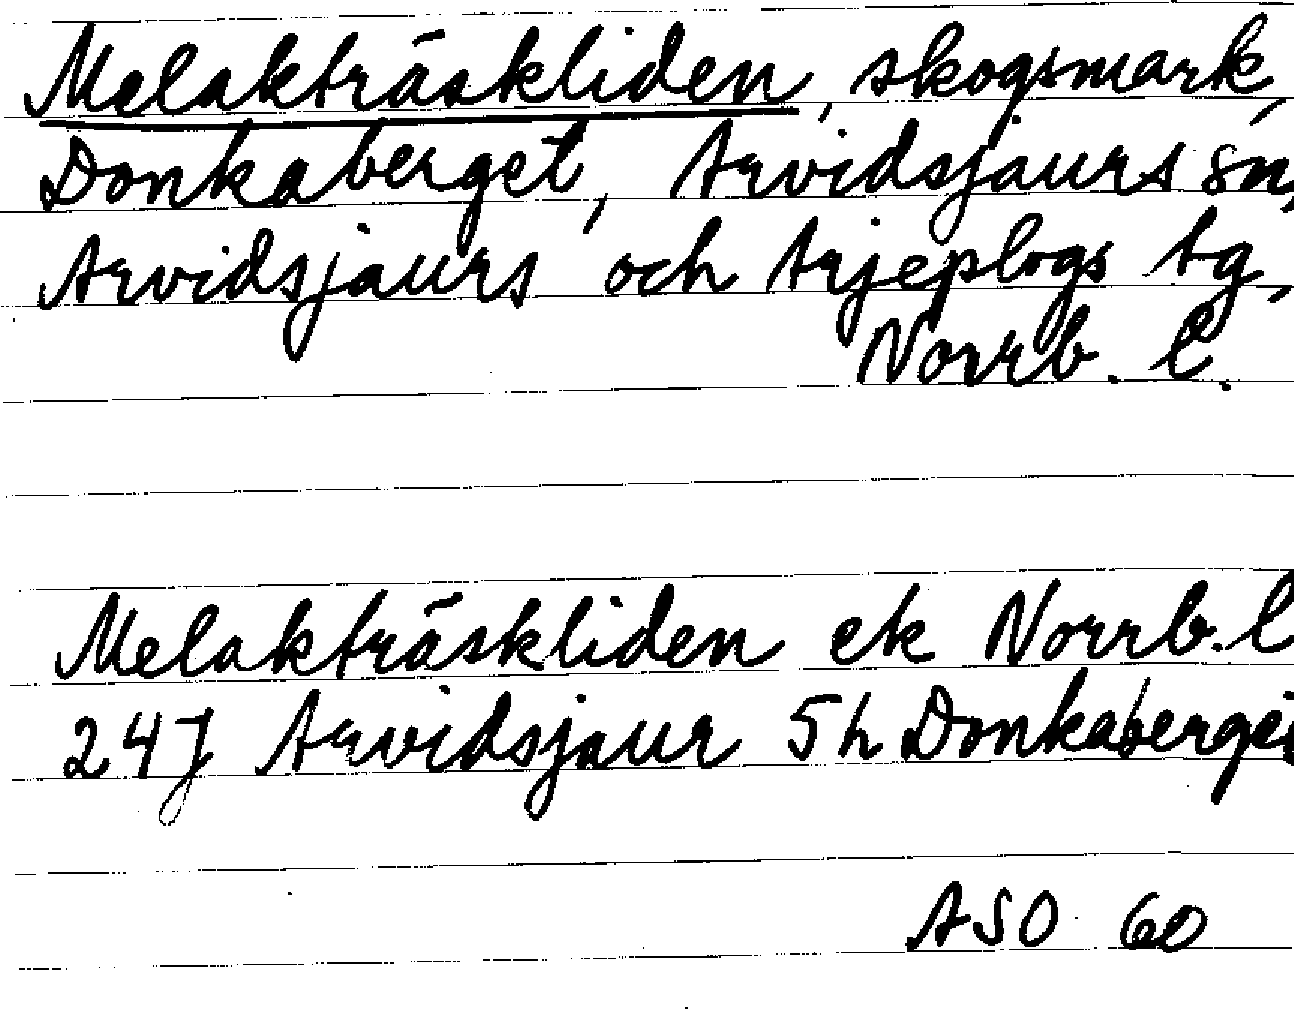 Melakträskliden, skogsmark,
Donkaberget, Arvidsjaurs sn,
Arvidsjaurs och Arjeplogs tg,
Norrb. l.
Melakträskliden ek Norrb. l
24J Arvidsjaur 5h Donkaberge
ASO 60